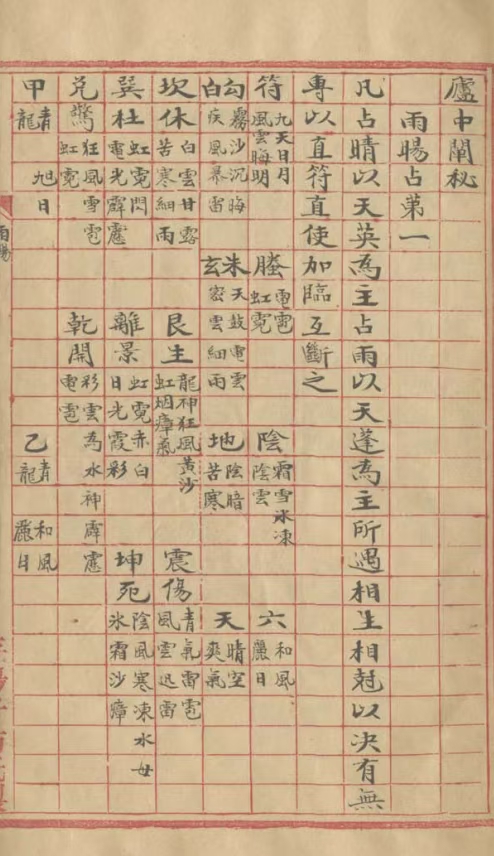 廬中闡秘
雨暘占第一
凡占晴以天英為主占雨以天蓬為主所遇相生相尅以決有無
專以直符直使加臨互斷之
符 九天日月風雲晦明 螣 電雹虹霓 陰 霜雪冰凍陰雲 六 和風麗日
勾白 霧沙沉晦疾風暴雷 朱玄 天鼓電雲密雲細雨 地 陰暗苦寒 天 晴空爽氣
坎休 白雲甘露苦寒細雨 艮生 龍神狂風黃沙虹烟瘴氣 震傷 青氣雷雹風雲迅雷
巽杜 虹霓閃電光霹靂 離景 虹霓赤白日光霞彩 坤死 陰風寒凍水母氷霜沙瘴
兌驚 狂風雪雹虹霓 乾開 彩雲為水神霹靂電雹
甲 青龍 旭日 乙 青龍 和風麗日
雨暘